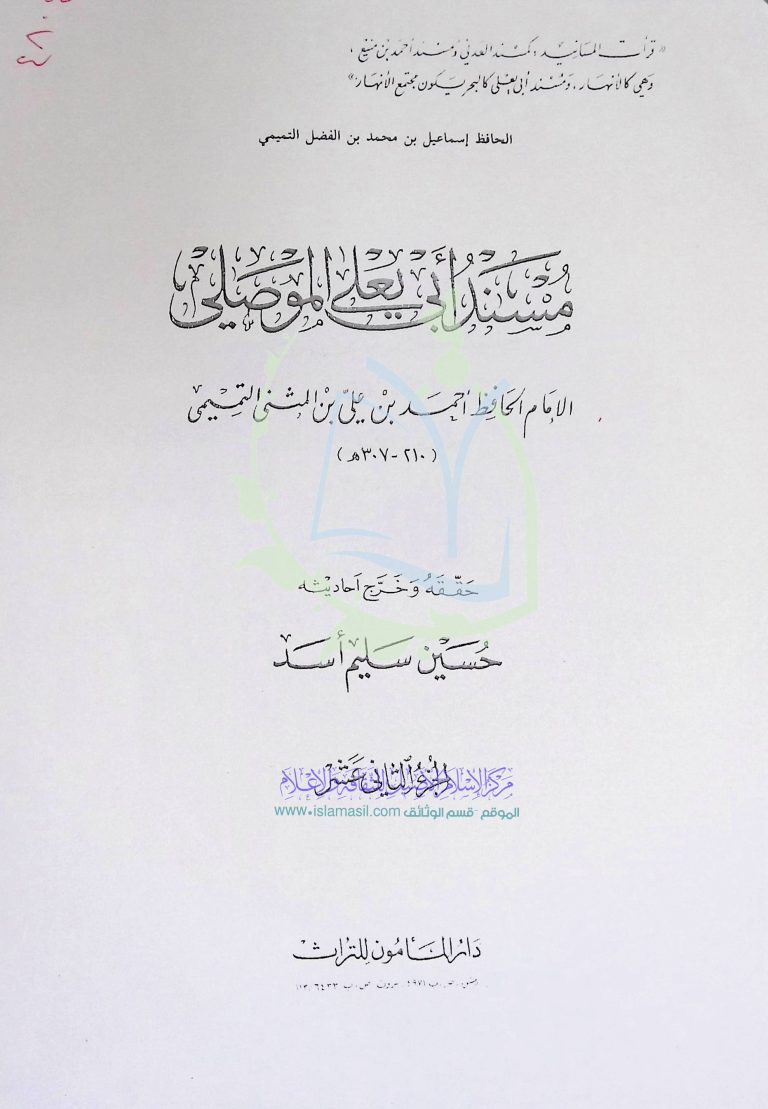 « قرأت المسانيد؛ كمسند العدني ومسند أحمد بن منيع،
وهي كالأنهار، ومسند أبي يعلى كالبحر يكون مجتمع الأنهار »
الحافظ إسماعيل بن محمد بن الفضل التميمي
مُسْنَدُ أَبِي يَعْلَى المَوْصِلِي
الإمام الحافظ أحمد بن علي بن المثنى التميمي
(٢١٠ - ٣٠٧ هـ)
حَقَّقَهُ وَخَرَّجَ أحاديثه
حُسَيْن سَليم أَسَد
الجُزءُ الثَّاني عَشَر
مركز الإسلام الأصيل للثقافة والإعلام
الموقع - قسم الوثائق www.islamasil.com
دَار المَأمُون للتراث
ص.ب ٤٩٧١ بيروت ص.ب